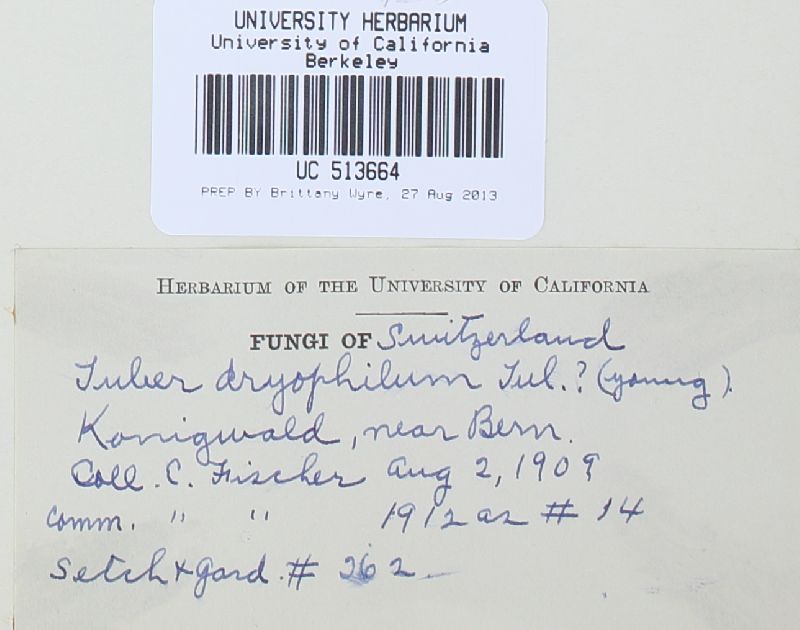 UNIVERSITY HERBARIUM
University of California
Berkeley
UC 513664
PREP BY Brittany Wyre, 27 Aug 2013
HERBARIUM OF THE UNIVERSITY OF CALIFORNIA
FUNGI OF Switzerland
Tuber dryophilum Tul.? (young).
Konigwald, near Bern.
Coll. C. Fischer Aug 2, 1909
Comm. " " 1912 as # 14
Setch & Gard. # 262